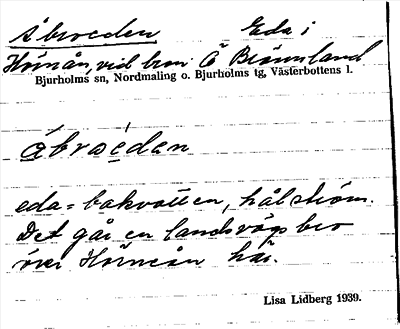 Åbroedan Eda i
Hörnån, vid bron. Ö Brännland
Bjurholms sn, Nordmaling o. Bjurholms tg, Västerbottens l.
åbroedan
eda = bakvatten, hålström.
Det går en landsvägsbro
över Hörneån här.
Lisa Lidberg 1939.